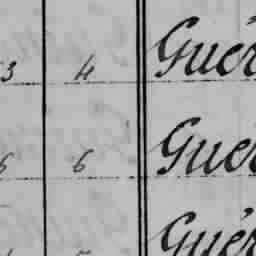 3 4 Guér
6 6 Guér
Guér